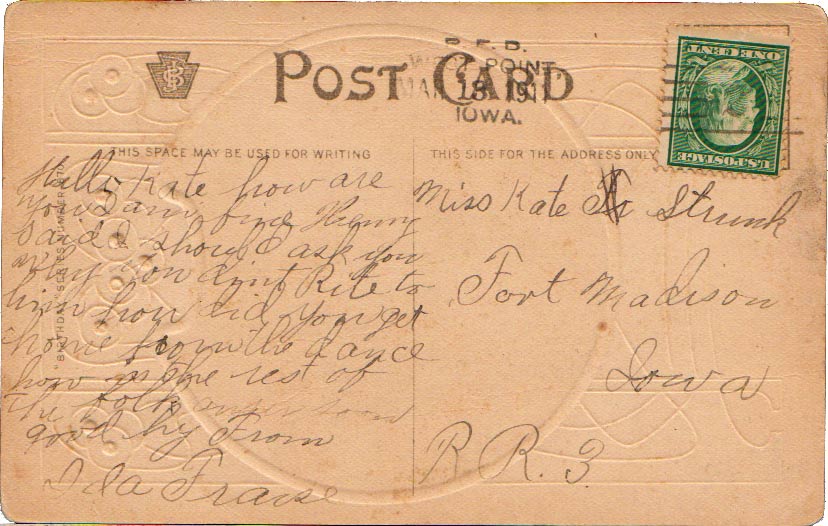 POST CARD
R.F.D.
WEST POINT,
MAR 13 1911
IOWA.
ONE CENT
U.S. POSTAGE
THIS SPACE MAY BE USED FOR WRITING
THIS SIDE FOR THE ADDRESS ONLY
Hello Kate how are
you I am fine Henry
said I should ask you
why you dont Rite to
him how did you get
home from the dance
how is the rest of
the folks answer soon
good by From
Ida Fraise
Miss Kate Strunk
Fort Madison
Iowa
R R. 3